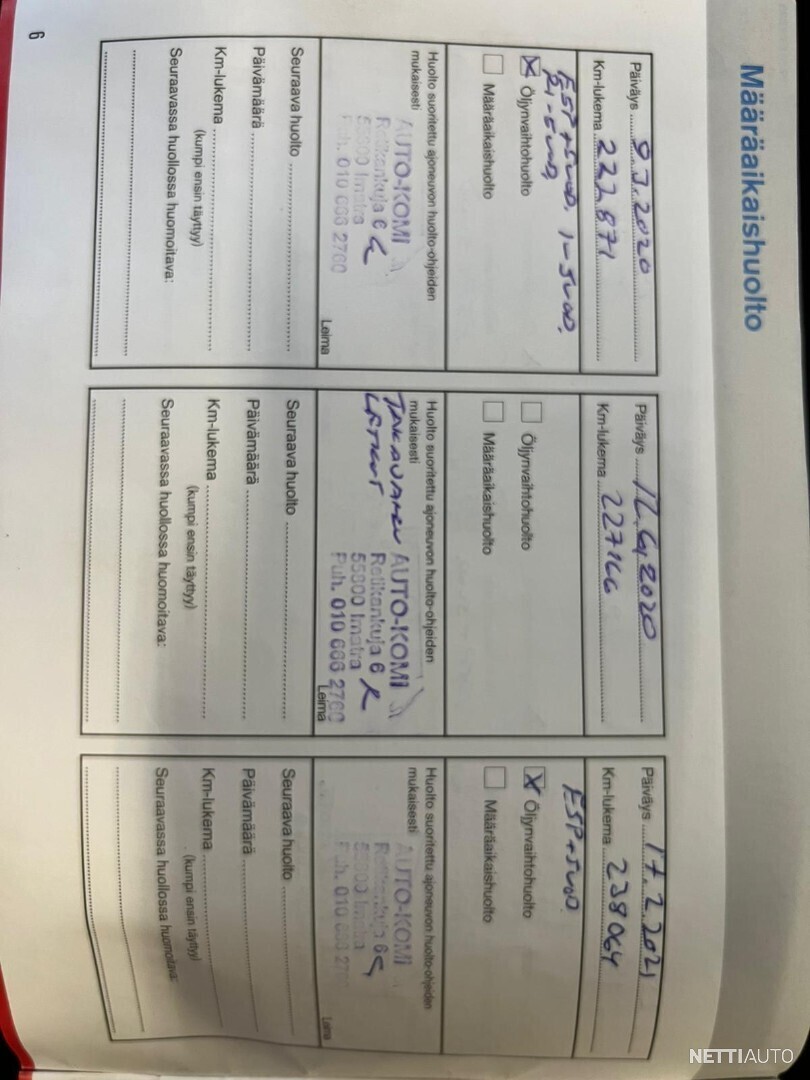 Määräaikaishuolto
Päiväys 9.3.2020
Km-lukema 222 871
ESP+suod, 1-suod,
Öljynvaihtohuolto
Määräaikaishuolto
Huolto suoritettu ajoneuvon huolto-ohjeiden
mukaisesti
AUTO-KOMI
Retikankuja 6
55800 Imatra
Puh. 010 666 2760
Leima
Seuraava huolto
Päivämäärä
Km-lukema
(kumpi ensin täyttyy)
Seuraavassa huollossa huomoitava:
Päiväys 12.6.2020
Km-lukema 227166
Öljynvaihtohuolto
Määräaikaishuolto
Huolto suoritettu ajoneuvon huolto-ohjeiden
mukaisesti
LETKUT
AUTO-KOMI
Retikankuja 6
55800 Imatra
Puh. 010 666 2760
Leima
Seuraava huolto
Päivämäärä
Km-lukema
(kumpi ensin täyttyy)
Seuraavassa huollossa huomoitava:
Päiväys 17.2.2021
Km-lukema 238064
ESP+suod.
Öljynvaihtohuolto
Määräaikaishuolto
Huolto suoritettu ajoneuvon huolto-ohjeiden
mukaisesti
AUTO-KOMI
Retikankuja 6
55800 Imatra
Puh. 010 666 27
Leima
Seuraava huolto
Päivämäärä
Km-lukema
(kumpi ensin täyttyy)
Seuraavassa huollossa huomoitava:
6
NETTIAUTO